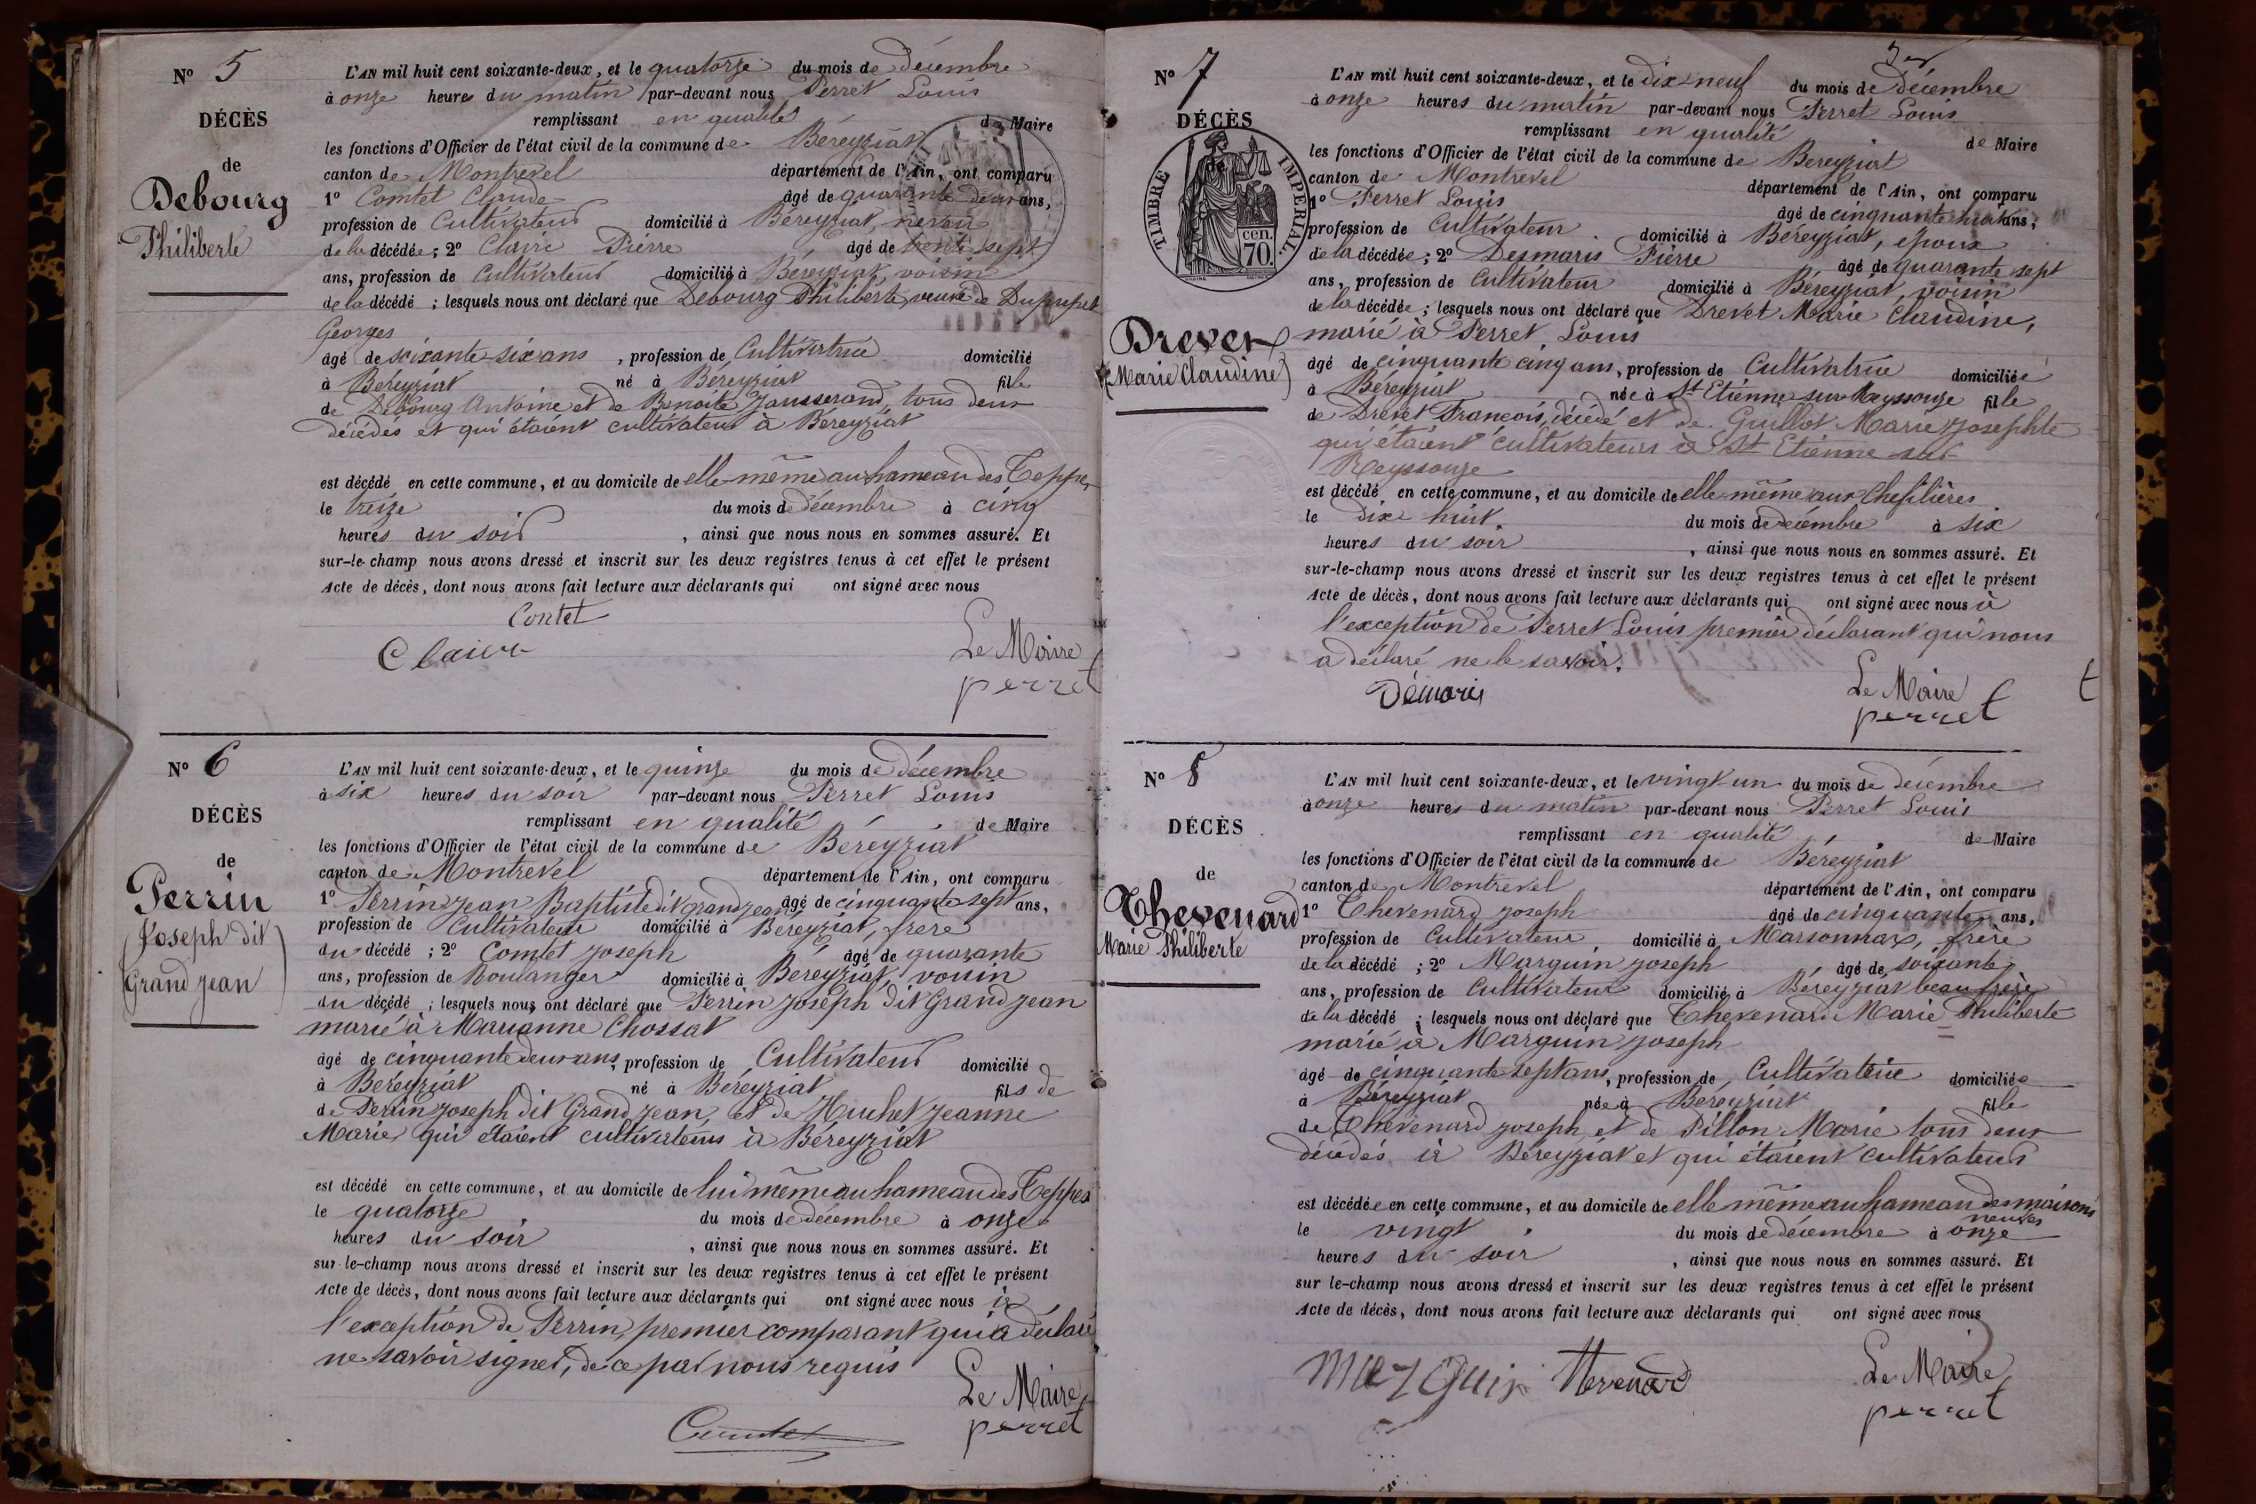 N° 5
DÉCÈS
de
Debourg
Philiberte
L'AN mil huit cent soixante-deux, et le quatorze du mois de Décembre
à onze heures du matin par-devant nous Perret Louis
remplissant en qualité de Maire
les fonctions d'Officier de l'état civil de la commune de Béreyziat
canton de Montrevel département de l'Ain, ont comparu
1° Comtet Claude âgé de quarante deux ans,
profession de Cultivateur domicilié à Béreyziat, neveu
de la décédée ; 2° Claire Pierre âgé de trente sept
ans, profession de Cultivateur domicilié à Béreyziat, voisin
de la décédé ; lesquels nous ont déclaré que Debourg Philiberte, veuve de Dupupet
Georges
âgé de soixante six ans , profession de Cultivatrice domicilié
à Béreyziat né à Béreyziat fille
de Debourg Antoine et de Benoite Jausserand, tous deux
décédés et qui étaient cultivateurs à Béreyziat
est décédé en cette commune, et au domicile de elle-même au hameau des Teppes
le treize du mois de décembre à cinq
heures du soir , ainsi que nous nous en sommes assuré. Et
sur-le-champ nous avons dressé et inscrit sur les deux registres tenus à cet effet le présent
Acte de décès, dont nous avons fait lecture aux déclarants qui ont signé avec nous
Contet
Claire
Le Maire
perret
N° 6
DÉCÈS
de
Perrin
(Joseph dit
Grand Jean)
L'AN mil huit cent soixante-deux, et le quinze du mois de décembre
à six heures du soir par-devant nous Perret Louis
remplissant en qualité de Maire
les fonctions d'Officier de l'état civil de la commune de Béreyziat
canton de Montrevel département de l'Ain, ont comparu
1° Perrin Jean Baptiste dit grand jean âgé de cinquante sept ans,
profession de Cultivateur domicilié à Béreyziat, frère
du décédé ; 2° Comtet Joseph âgé de quarante
ans, profession de Boulanger domicilié à Béreyziat voisin
du décédé ; lesquels nous ont déclaré que Perrin Joseph dit Grand Jean
marié à Marianne Chossat
âgé de cinquante deux ans, profession de Cultivateur domicilié
à Béréyziat né à Béreyziat fils de
de Perrin Joseph dit Grand Jean, et de Huchet Jeanne
Marie, qui étaient cultivateurs à Béreyziat
est décédé en cette commune, et au domicile de lui même au hameau des Teppes
le quatorze du mois de décembre à onze
heures du soir , ainsi que nous nous en sommes assuré. Et
sur-le-champ nous avons dressé et inscrit sur les deux registres tenus à cet effet le présent
Acte de décès, dont nous avons fait lecture aux déclarants qui ont signé avec nous à
l'exception de Perrin, premier comparant qui a déclaré
ne savoir signer, de ce par nous requis
Le Maire
Comtet
perret
N° 7
DÉCÈS
TIMBRE IMPERIAL.
cen.
70.
Drevet
(Marie Claudine)
L'AN mil huit cent soixante-deux, et le dix neuf du mois de décembre
à onze heures du matin par-devant nous Perret Louis
remplissant en qualité de Maire
les fonctions d'Officier de l'état civil de la commune de Bereyziat
canton de Montrevel département de l'Ain, ont comparu
1° Perret Louis âgé de cinquante huit ans,
profession de Cultivateur domicilié à Béreyziat, époux
de la décédée ; 2° Desmaris Pierre âgé de quarante sept
ans, profession de Cultivateur domicilié à Béreyziat, voisin
de la décédée ; lesquels nous ont déclaré que Drevet Marie Claudine,
marié à Perret Louis
âgé de cinquante cinq ans, profession de Cultivatrice domiciliée
à Béreyziat née à St Etienne sur Reyssouze fille
de Drevet François, décédé et de Guillot Marie Josephte
qui étaient cultivateurs à St Etienne sur
Reyssouze
est décédé en cette commune, et au domicile de elle même aux Chefilières
le dix huit. du mois de décembre à six
heures du soir , ainsi que nous nous en sommes assuré. Et
sur-le-champ nous avons dressé et inscrit sur les deux registres tenus à cet effet le présent
Acte de décès, dont nous avons fait lecture aux déclarants qui ont signé avec nous à
l'exception de Perret Louis premier déclarant qui nous
a déclaré ne le savoir.
Démaris
Le Maire
perret
N° 8
DÉCÈS
de
Thevenard
Marie Philiberte
L'AN mil huit cent soixante-deux, et le vingt un du mois de décembre
à onze heures du matin par-devant nous Perret Louis
remplissant en qualité de Maire
les fonctions d'Officier de l'état civil de la commune de Béreyziat
canton de Montrevel département de l'Ain, ont comparu
1° Thevenard Joseph âgé de cinquante ans,
profession de Cultivateur domicilié à Marsonnax, frère
de la décédé ; 2° Marguin Joseph âgé de soixante
ans, profession de Cultivateur domicilié à Béreyziat beau frère
de la décédé ; lesquels nous ont déclaré que Thevenard Marie Philiberte
marié à Marguin Joseph
âgé de cinquante sept ans, profession de Cultivatrice domiciliée
à Béreyziat née à Bereyziat fille
de Thevenard Joseph, et de Pillon Marie tous deux
décédés à Béreyziat et qui étaient cultivateurs
est décédée en cette commune, et au domicile de elle même au hameau des maisons
neuves
le vingt du mois de décembre à onze
heures du soir , ainsi que nous nous en sommes assuré. Et
sur le-champ nous avons dressé et inscrit sur les deux registres tenus à cet effet le présent
Acte de décès, dont nous avons fait lecture aux déclarants qui ont signé avec nous
marguin Thevenard
Le Maire
perret